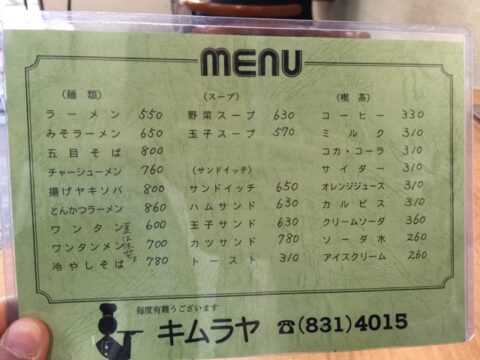 MENU
(麺類)
ラーメン 550
みそラーメン 650
五目そば 800
チャーシューメン 760
揚げヤキソバ 800
とんかつラーメン 860
ワンタン 600
ワンタンメン 700
冷やしそば 780
(スープ)
野菜スープ 630
玉子スープ 570
(サンドイッチ)
サンドイッチ 650
ハムサンド 630
玉子サンド 630
カツサンド 780
トースト 310
(喫茶)
コーヒー 330
ミルク 310
コカ・コーラ 310
サイダー 310
オレンジジュース 310
カルピス 310
クリームソーダ 360
ソーダ水 260
アイスクリーム 260
毎度有難うございます
キムラヤ ☎(831)4015